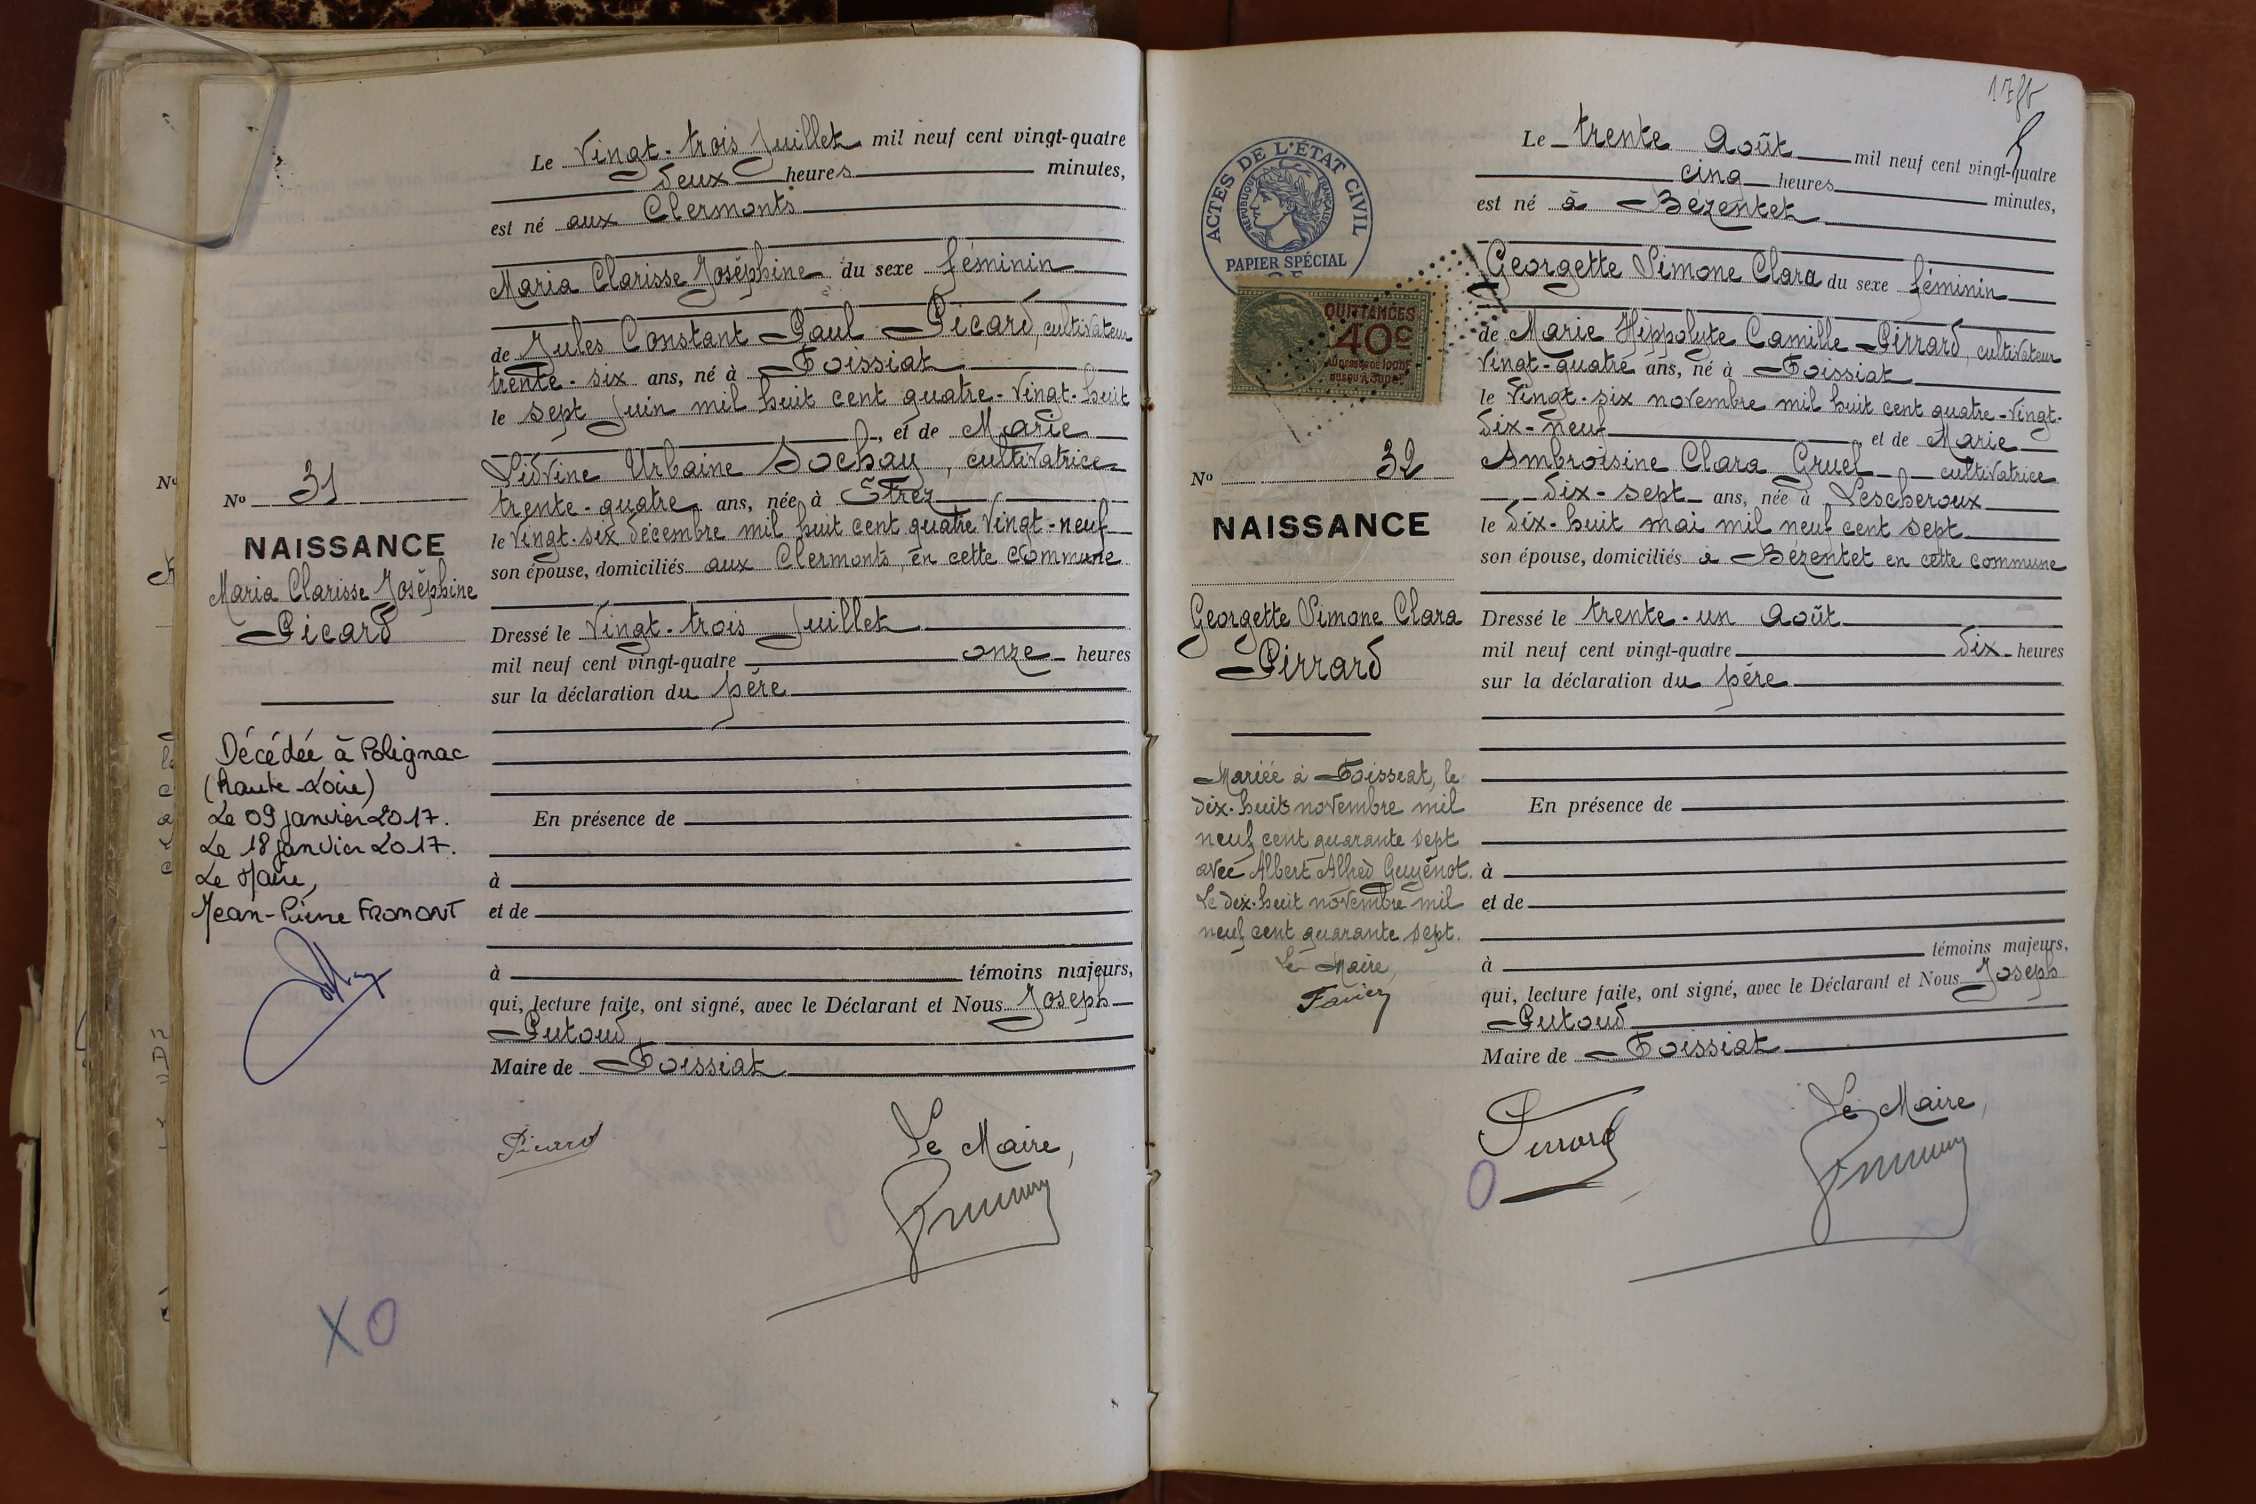 Le Vingt-trois Juillet mil neuf cent vingt-quatre
deux heures minutes,
est né aux Clermonts
Maria Clarisse Joséphine du sexe féminin
de Jules Constant Paul Picard, cultivateur
trente-six ans, né à Foissiat
le sept Juin mil huit cent quatre-vingt-huit
, et de Marie
Lidvine Urbaine Sochay, cultivatrice
trente-quatre ans, née à Etrez
le vingt-six décembre mil huit cent quatre vingt-neuf
son épouse, domiciliés aux Clermonts, en cette commune
Dressé le Vingt-trois Juillet
mil neuf cent vingt-quatre onze heures
sur la déclaration du père
En présence de
à
et de
à témoins majeurs,
qui, lecture faite, ont signé, avec le Déclarant et Nous Joseph
Putoud
Maire de Foissiat
Picard
Le Maire,
No 31
NAISSANCE
Maria Clarisse Joséphine
Picard
Décédée à Polignac
(Haute-Loire)
Le 09 janvier 2017.
Le 18 janvier 2017.
Le Maire,
Jean-Pierre FROMONT
X O
No
ACTES DE L'ÉTAT CIVIL
RÉPUBLIQUE FRANÇAISE
PAPIER SPÉCIAL
QUITTANCES
40c
No 32
NAISSANCE
Georgette Simone Clara
Pirrard
Mariée à Foissiat, le
dix-huit novembre mil
neuf cent quarante sept
avec Albert Alfred Guyénot.
Le dix-huit novembre mil
neuf cent quarante sept.
Le Maire,
Le trente Août mil neuf cent vingt-quatre
cinq heures minutes,
est né à Bézentet
Georgette Simone Clara du sexe féminin
de Marie Hippolyte Camille Pirrard, cultivateur
vingt-quatre ans, né à Foissiat
le Vingt-six novembre mil huit cent quatre-vingt-
dix-neuf et de Marie
Ambroisine Clara Gruel cultivatrice
dix-sept ans, née à Lescheroux
le dix-huit mai mil neuf cent sept
son épouse, domiciliés à Bézentet en cette commune
Dressé le trente-un Août
mil neuf cent vingt-quatre dix heures
sur la déclaration du père
En présence de
à
et de
à témoins majeurs,
qui, lecture faite, ont signé, avec le Déclarant et Nous Joseph
Putoud
Maire de Foissiat
Le Maire,
O